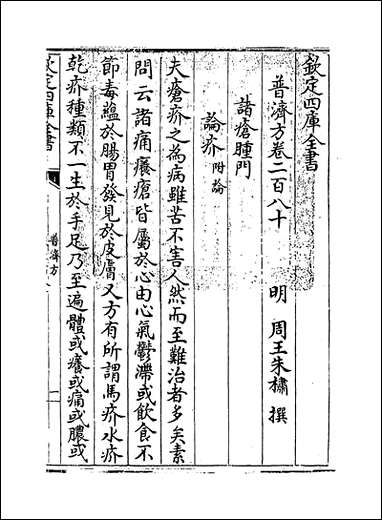 欽定四庫全書
普濟方卷二百八十
明 周王朱橚 撰
諸瘡腫門
論疥 附論
夫瘡疥之為病雖苦不害人然而至難治者多矣素
問云諸痛癢瘡皆屬於心由心氣鬱滯或飲食不
節毒蘊於腸胃發見於皮膚又方有所謂馬疥水疥
乾疥種類不一生於手足乃至遍體或癢或痛或膿或
欽定四庫全書
普濟方
一